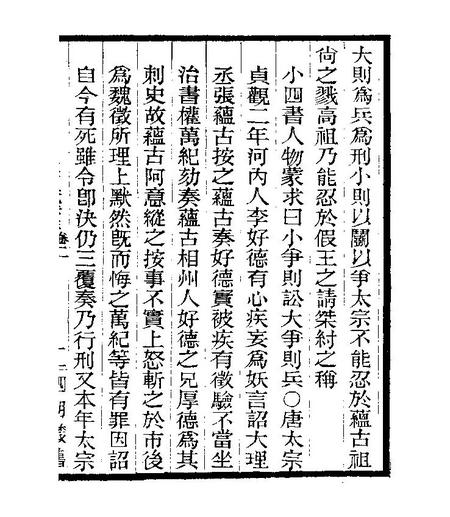 大則為兵為刑小則以鬭以爭太宗不能忍於蘊古祖
尙之戮高祖乃能忍於假王之請桀紂之稱
小四書人物蒙求曰小爭則訟大爭則兵○唐太宗
貞觀二年河內人李好德有心疾妄為妖言詔大理
丞張蘊古按之蘊古奏好德實被疾有徵驗不當坐
治書權萬紀劾奏蘊古相州人好德之兄厚德為其
刺史故蘊古阿意縱之按事不實上怒斬之於市後
為魏徵所理上默然旣而悔之萬紀等皆有罪因詔
自今有死雖令卽決仍三覆奏乃行刑又本年太宗
卷二
四明叢書